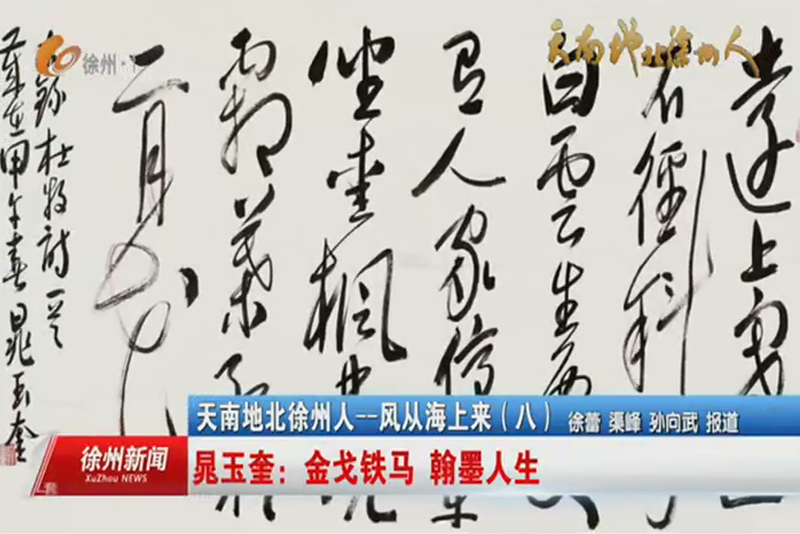 徐州·1
天南地北徐州人
遠上寒山
石徑斜
白雲生處
有人家停車
坐愛楓林晚
霜葉紅於
二月花
右錄杜牧詩一首
歲在甲午春晁玉奎
天南地北徐州人--风从海上来（八） 徐蕾 渠峰 孙向武 报道
徐州新闻
XuZhou NEWS
晁玉奎：金戈铁马 翰墨人生